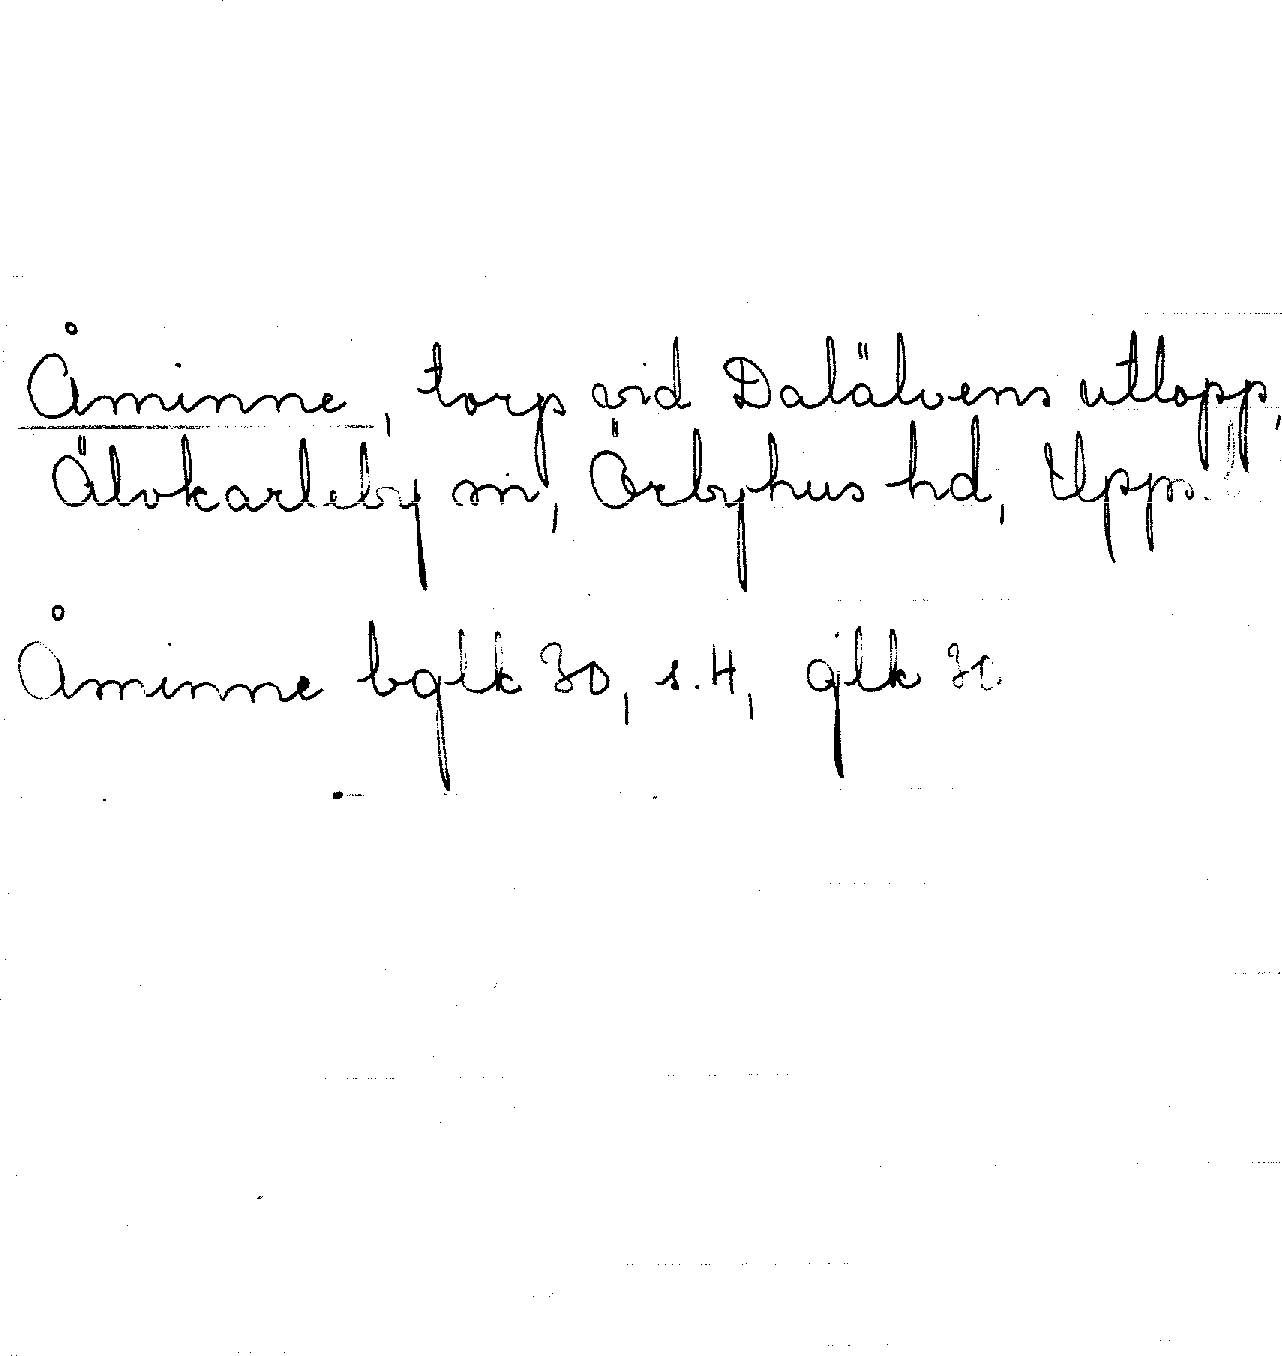 Åminne, torp vid Dalälvens utlopp,
Älvkarleby sn, Örbyhus hd, Upps. l
Åminne bglk 30, s. 4, glk 30